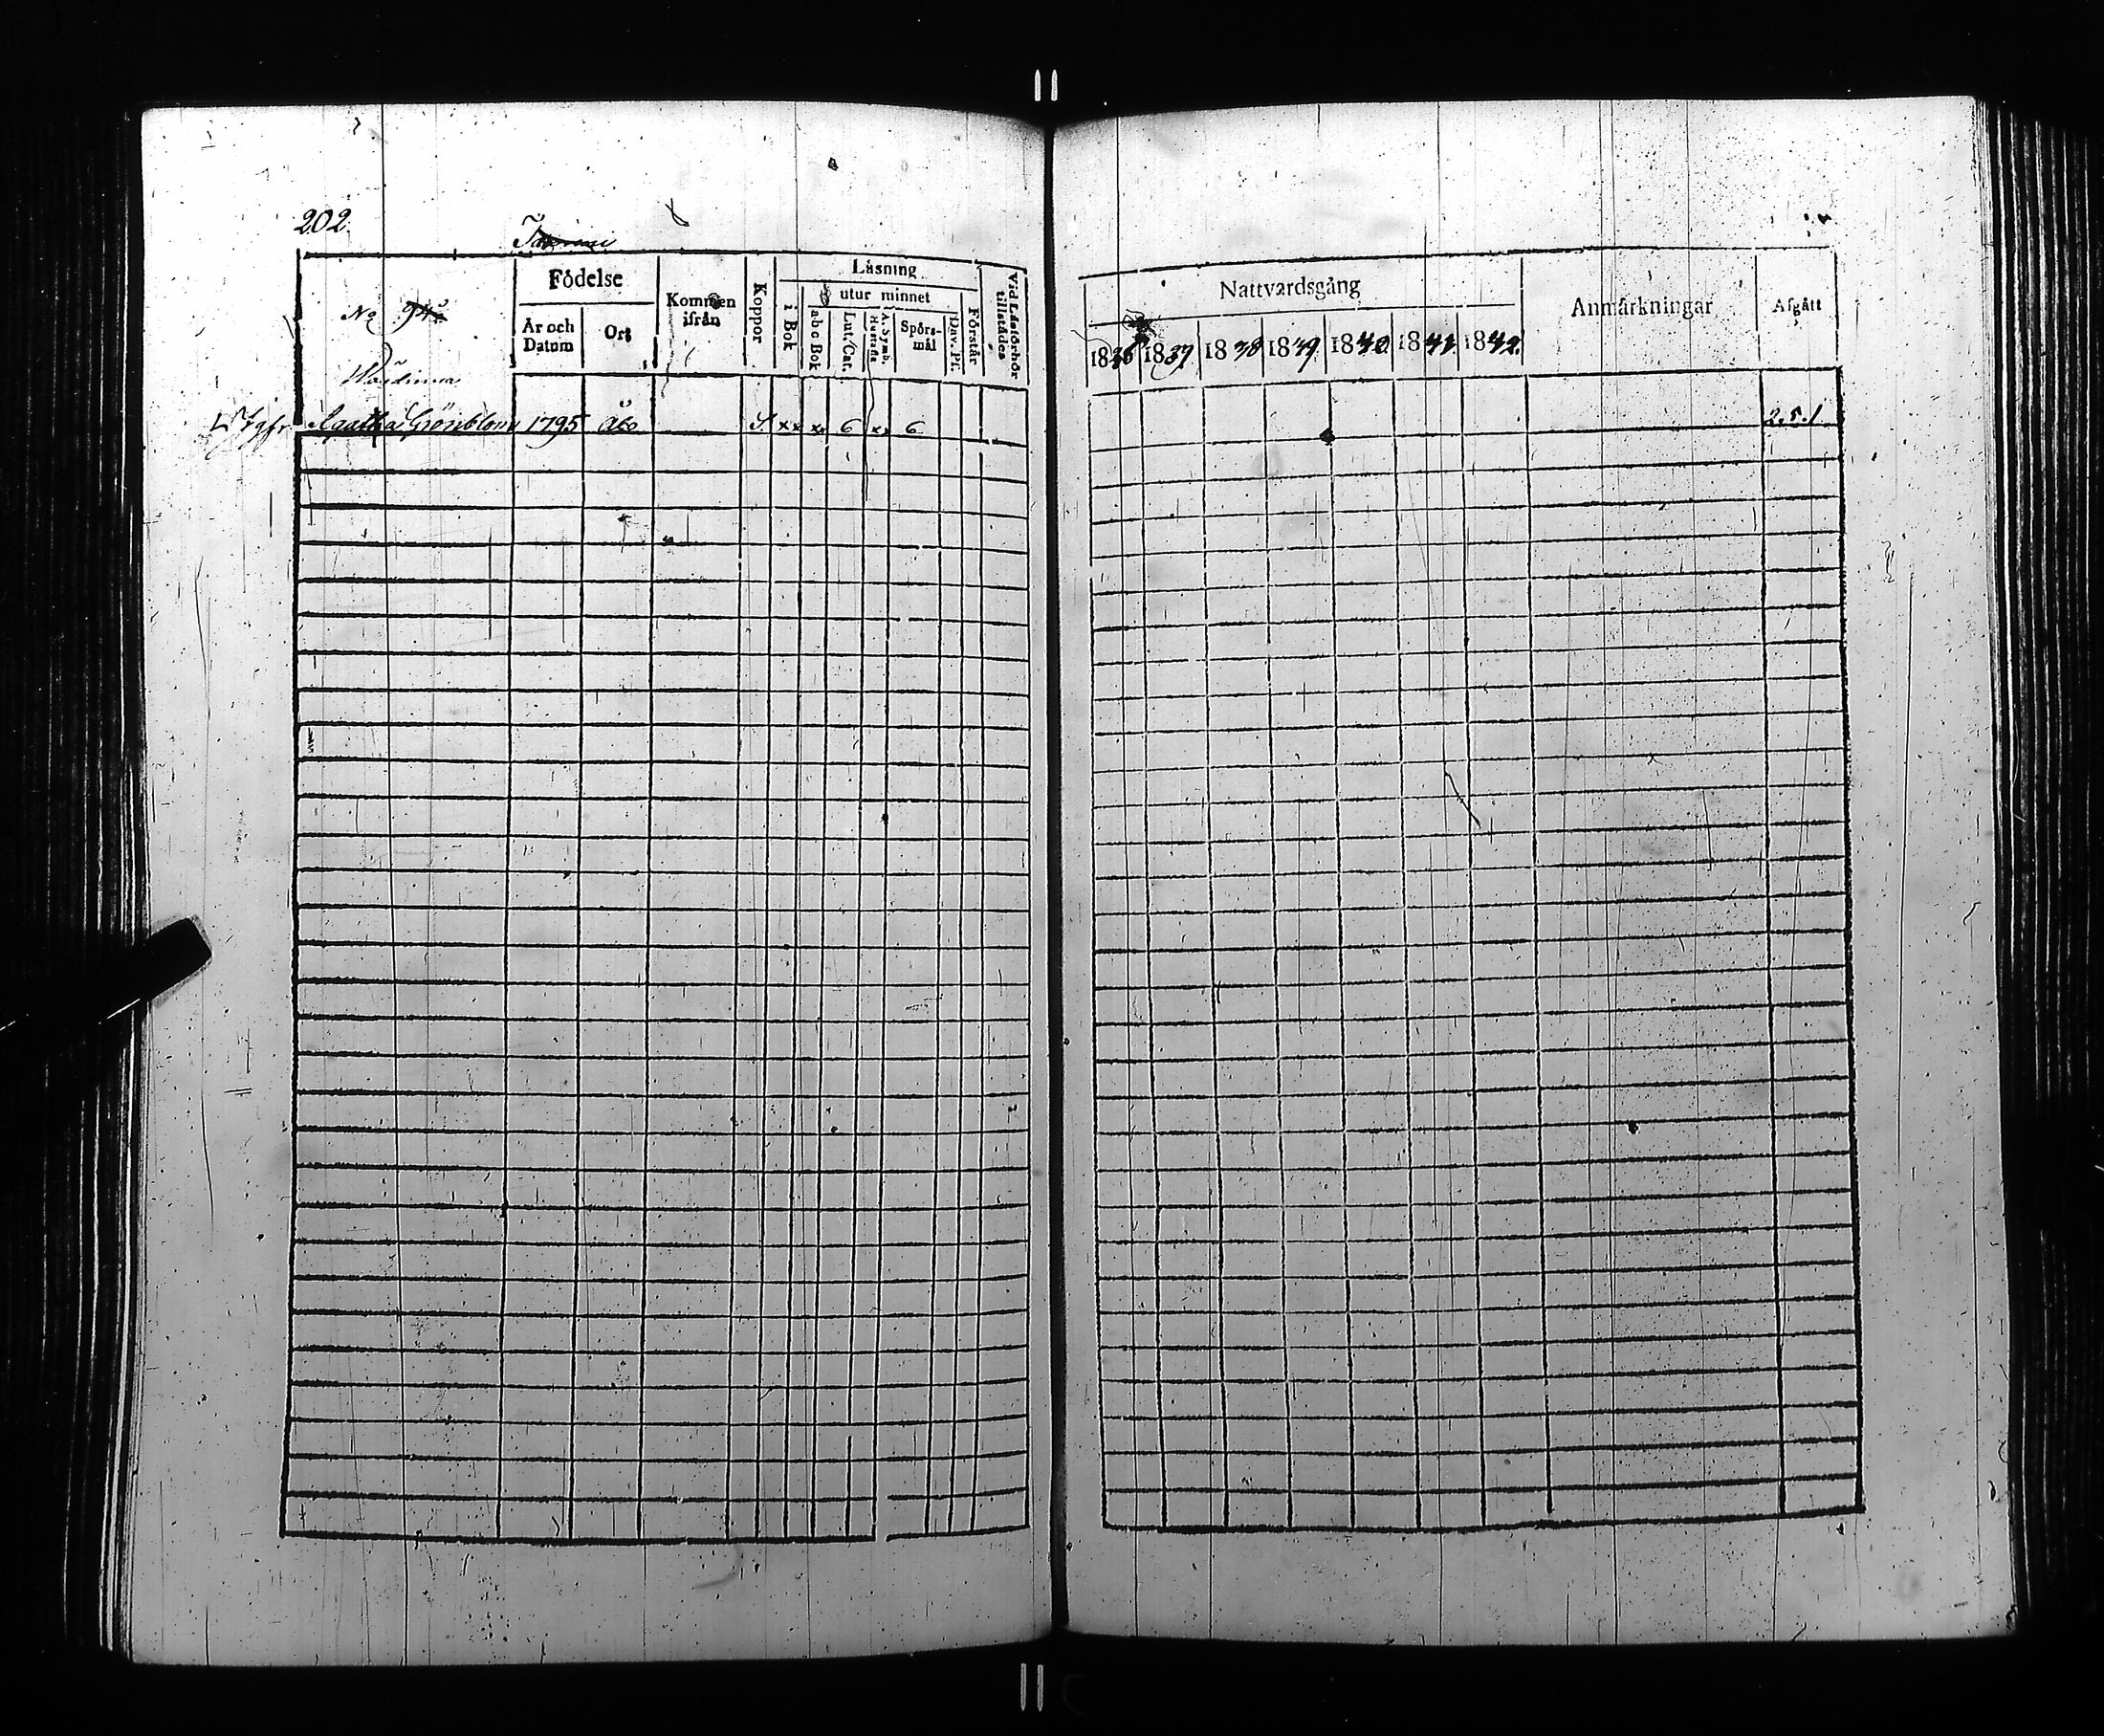 202.
Födelse
Kommen ifrån
Koppor
Läsning
i Bok
utur minnet
a b c Bok
Lut. Cat.
A. Symb. Hustafla
Spörs-mål
Dav. Ps.
Förstår
Vid Läsförhör tillstädes
År och Datum
Ort
No
Wärdinna
Agatha Grönblom 1795 Åbo S. xx x 6 x 6
Nattvardsgång
Anmärkningar
Afgått
1836 1837 1838 1839 1840 1841 1842.
2.5.1